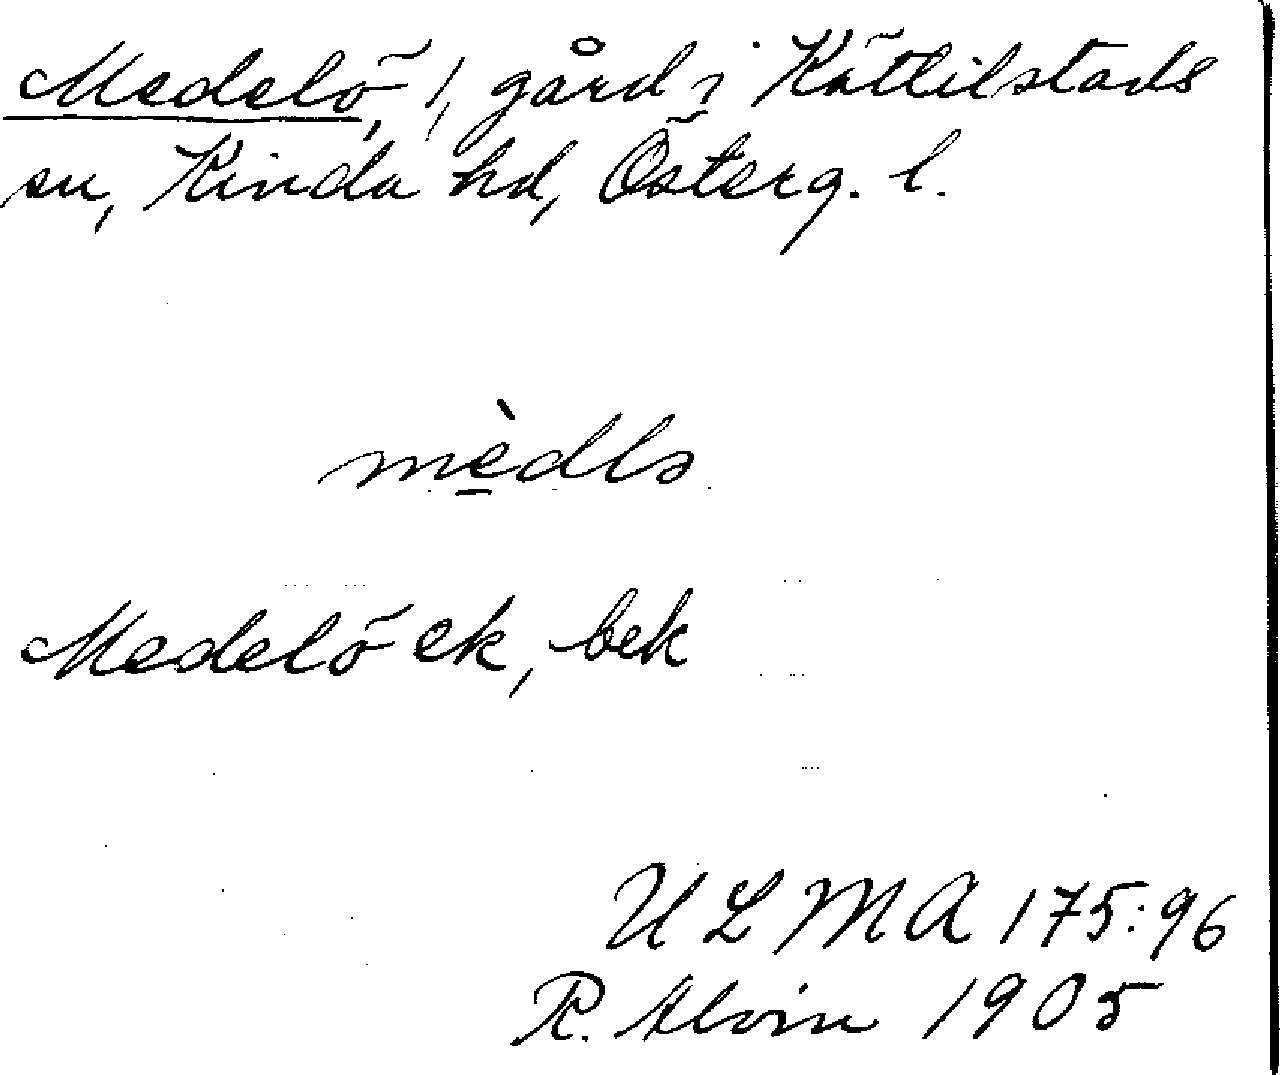 Medelö, 1, gård i Kättilstads
sn, Kinda hd, Österg. l.
mèdlo
Medelö ek, bek
ULMA 175:96
R. Alvin 1905